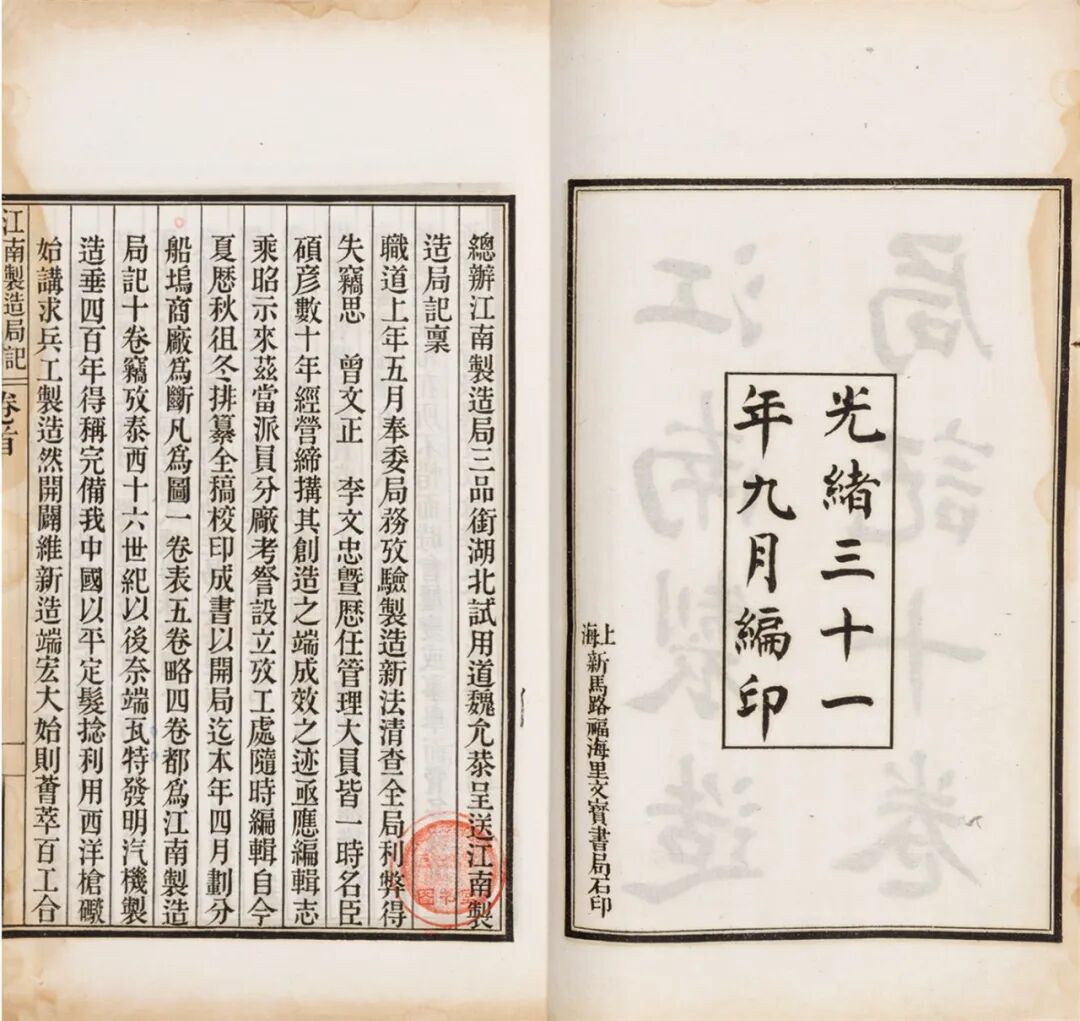 光緒三十一
年九月編印
上海新馬路福海里文寶書局石印
總辦江南製造局三品銜湖北試用道魏允恭呈送江南製
造局記稟
職道上年五月奉委局務攷驗製造新法清查全局利弊得
失竊思　曾文正　李文忠暨歷任管理大員皆一時名臣
碩彥數十年經營締搆其創造之端成效之迹亟應編輯志
乘昭示來茲當派員分廠考詧設立攷工處隨時編輯自今
夏歷秋徂冬排纂全稿校印成書以開局迄本年四月劃分
船塢商廠爲斷凡爲圖一卷表五卷略四卷都爲江南製造
局記十卷竊攷泰西十六世紀以後奈端瓦特發明汽機製
造垂四百年得稱完備我中國以平定髮捻利用西洋槍礮
始講求兵工製造然開闢維新造端宏大始則薈萃百工合
江南製造局記
卷首
局記十卷
江南製造